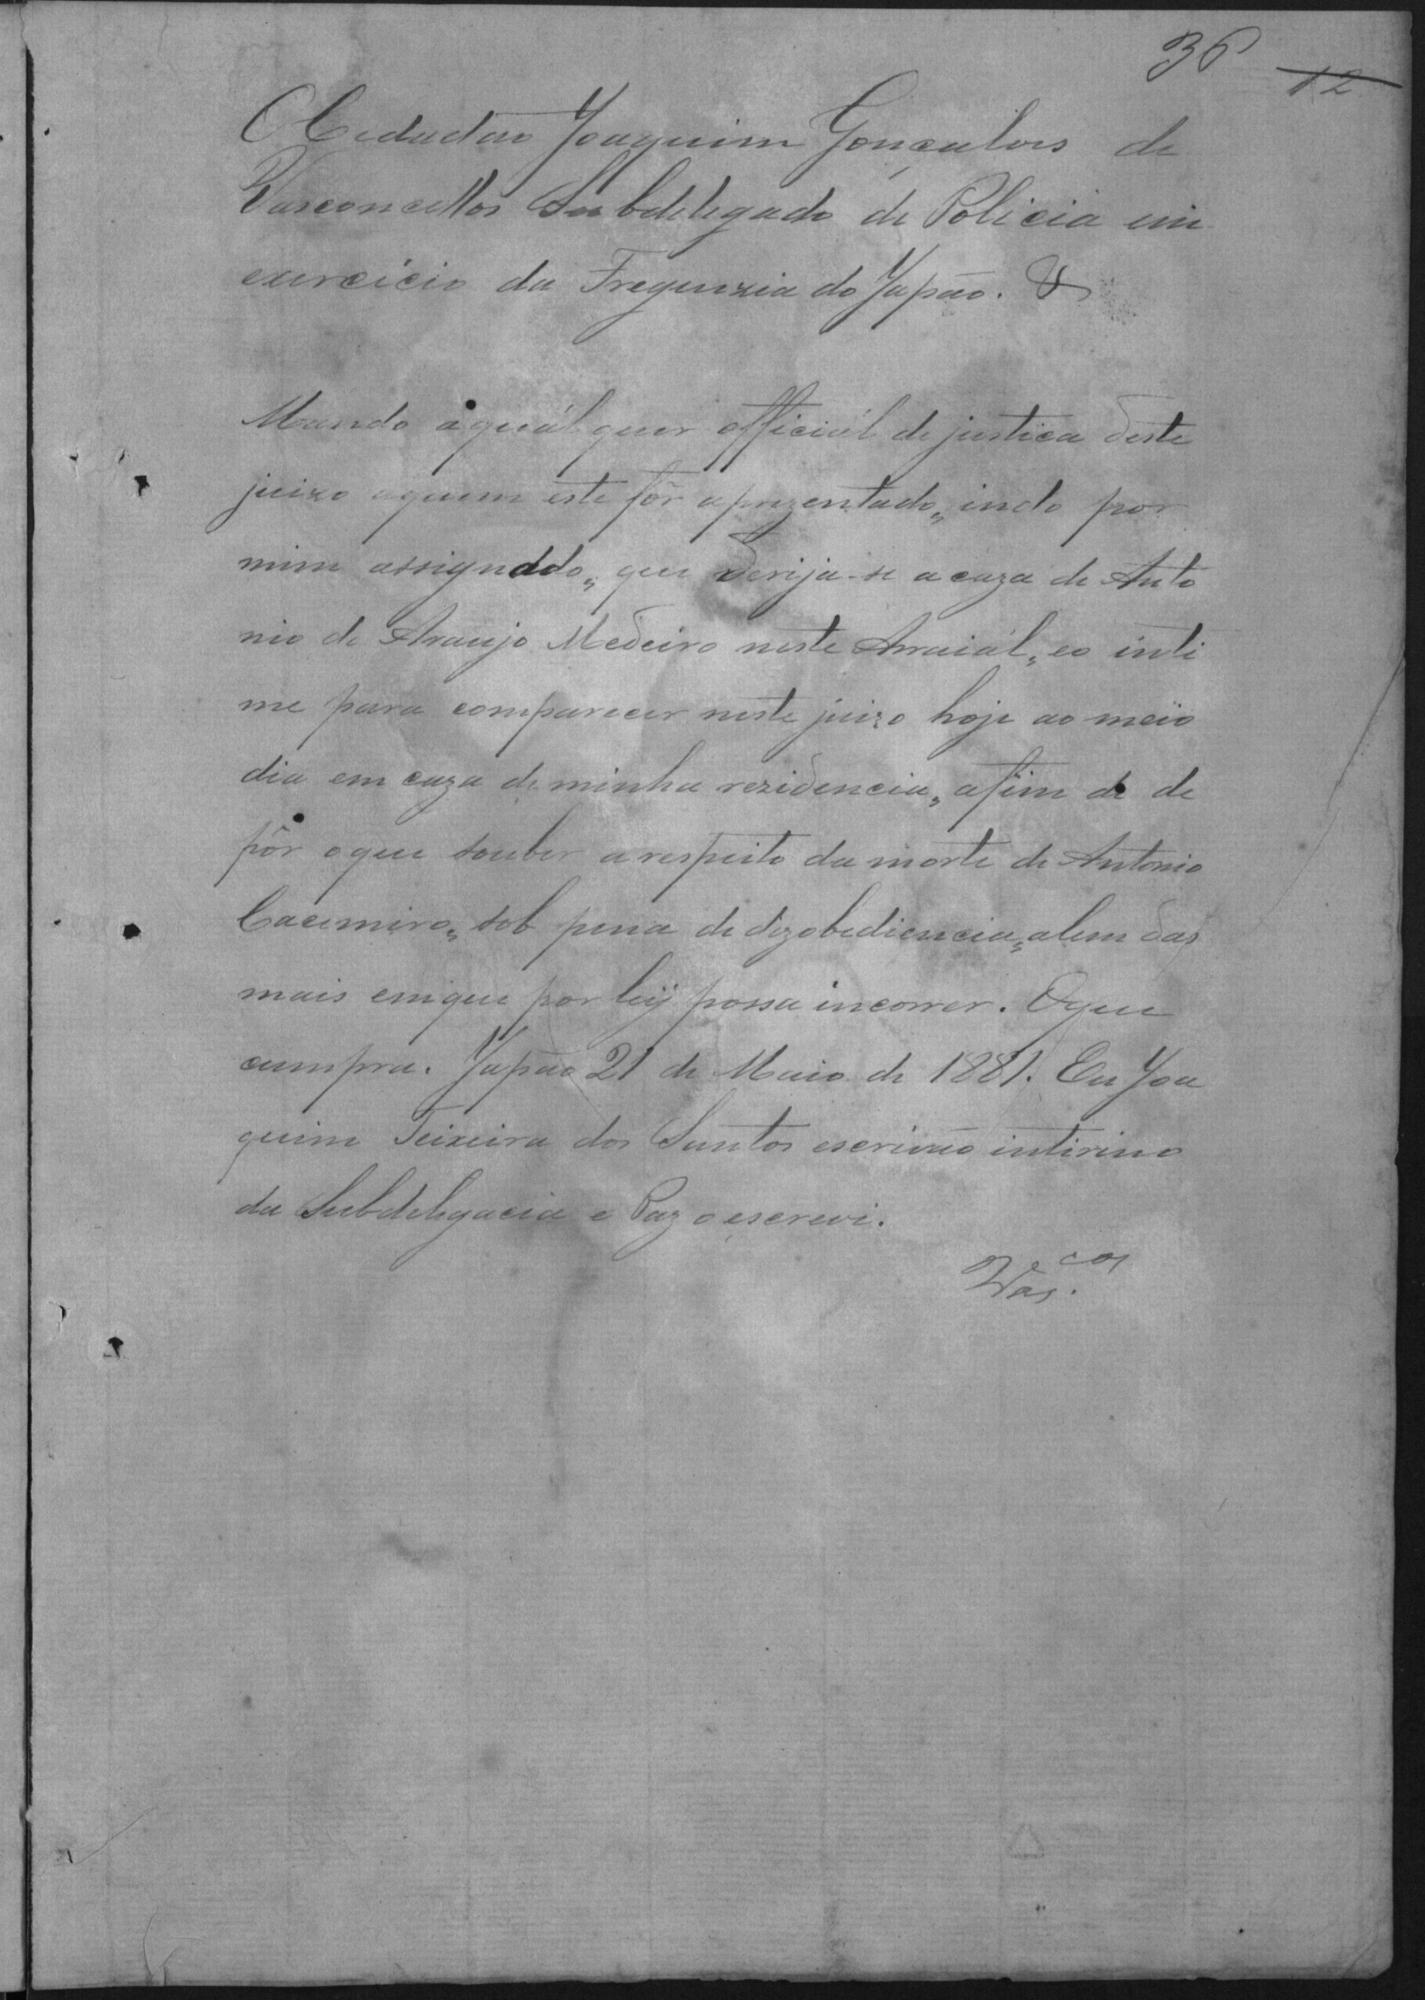 36
12
O Cidadão Joaquim Gonçalves de
Vasconcellos Subdelegado de Policia em
exercicio da Freguezia do Japão. &
Mando a quál quer official de justica deste
juizo aquem este fôr aprezentado, indo por
mim assignado, que Derija-se a caza de Anto
nio de Araujo Medeiro neste Arraiál, eo inti
me para comparecer neste juizo hoje ao meio
dia em caza de minha rezidencia, afim de de
pôr oque souber a respeito da morte de Antonio
Cacemiro, sob pena de dizobediencia, alem das
mais emque por leÿ possa incorrer. Oque
cumpra. Japão 21 de Maio de 1881. Eu Joa
quim Teixeira dos Santos escrivão intirino
da Subdelegacia e Paz o escrevi.
Vas.cos